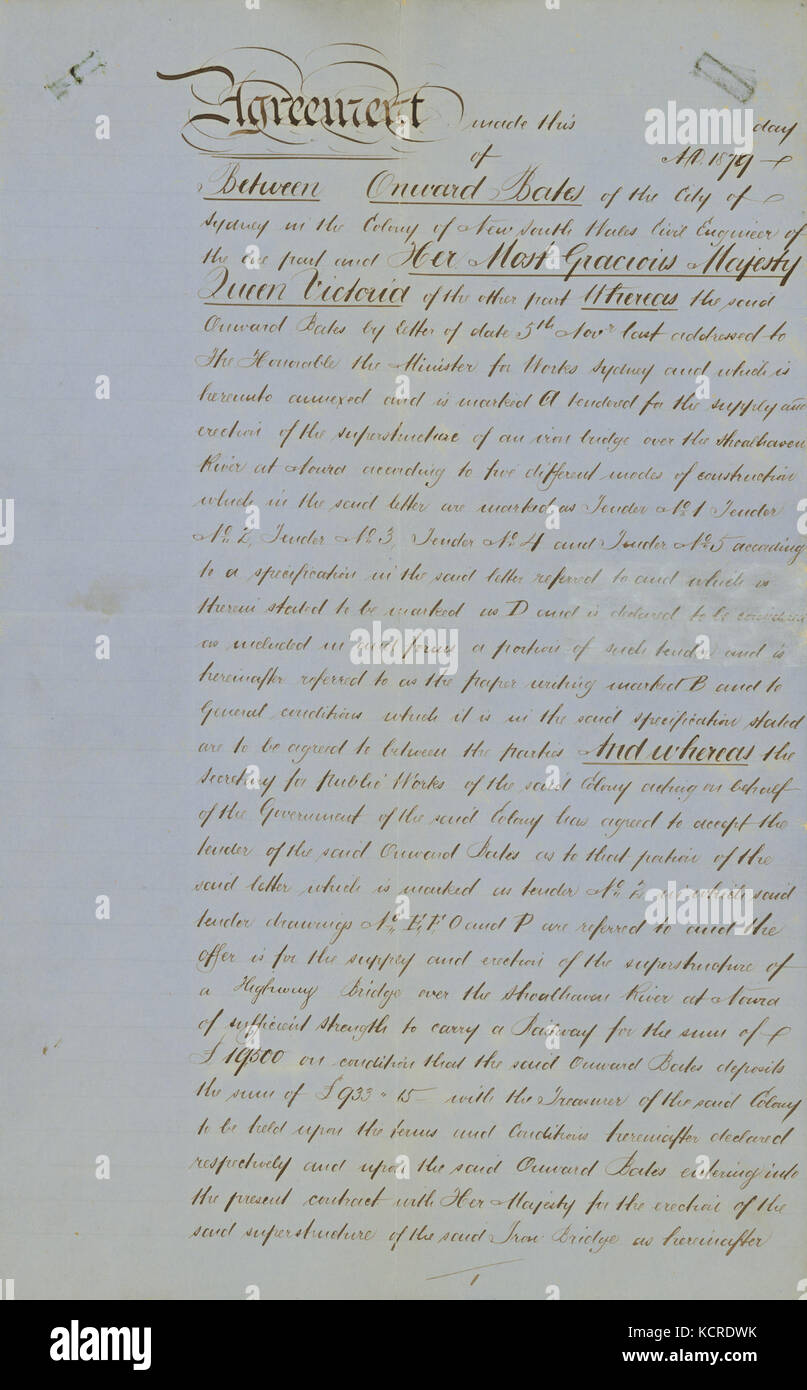 Agreement made this day
of A.D. 1879
Between Onward Bates of the City of
Sydney in the Colony of New South Wales Civil Engineer of
the one part and Her Most Gracious Majesty
Queen Victoria of the other part Whereas the said
Onward Bates by letter of date 5th Novr last addressed to
The Honorable the Minister for Works Sydney and which is
hereunto annexed and is marked A tendered for the supply and
erection of the superstructure of an iron bridge over the Shoalhaven
River at Nowra according to five different modes of construction
which in the said letter are marked as Tender No 1 Tender
No 2, Tender No 3, Tender No 4 and Tender No 5 according
to a specification in the said letter referred to and which is
therein stated to be marked as D and is declared to be considered
as included in and forms a portion of such tender and is
hereinafter referred to as the paper writing marked B and to
General conditions which it is in the said specification stated
are to be agreed to between the parties And whereas the
Secretary for Public Works of the said Colony acting on behalf
of the Government of the said Colony has agreed to accept the
tender of the said Onward Bates as to that portion of the
said letter which is marked as tender No 2 in which said
tender drawings No E, F, O and P are referred to and the
offer is for the supply and erection of the superstructure of
a Highway Bridge over the Shoalhaven River at Nowra
of sufficient strength to carry a Railway for the sum of
£19500 on condition that the said Onward Bates deposits
the sum of £933 " 15 with the Treasurer of the said Colony
to be held upon the terms and Conditions hereinafter declared
respectively and upon the said Onward Bates entering into
the present contract with Her Majesty for the erection of the
said superstructure of the said Iron Bridge as hereinafter
1
alamy
Image ID: KCRDWK
www.alamy.com